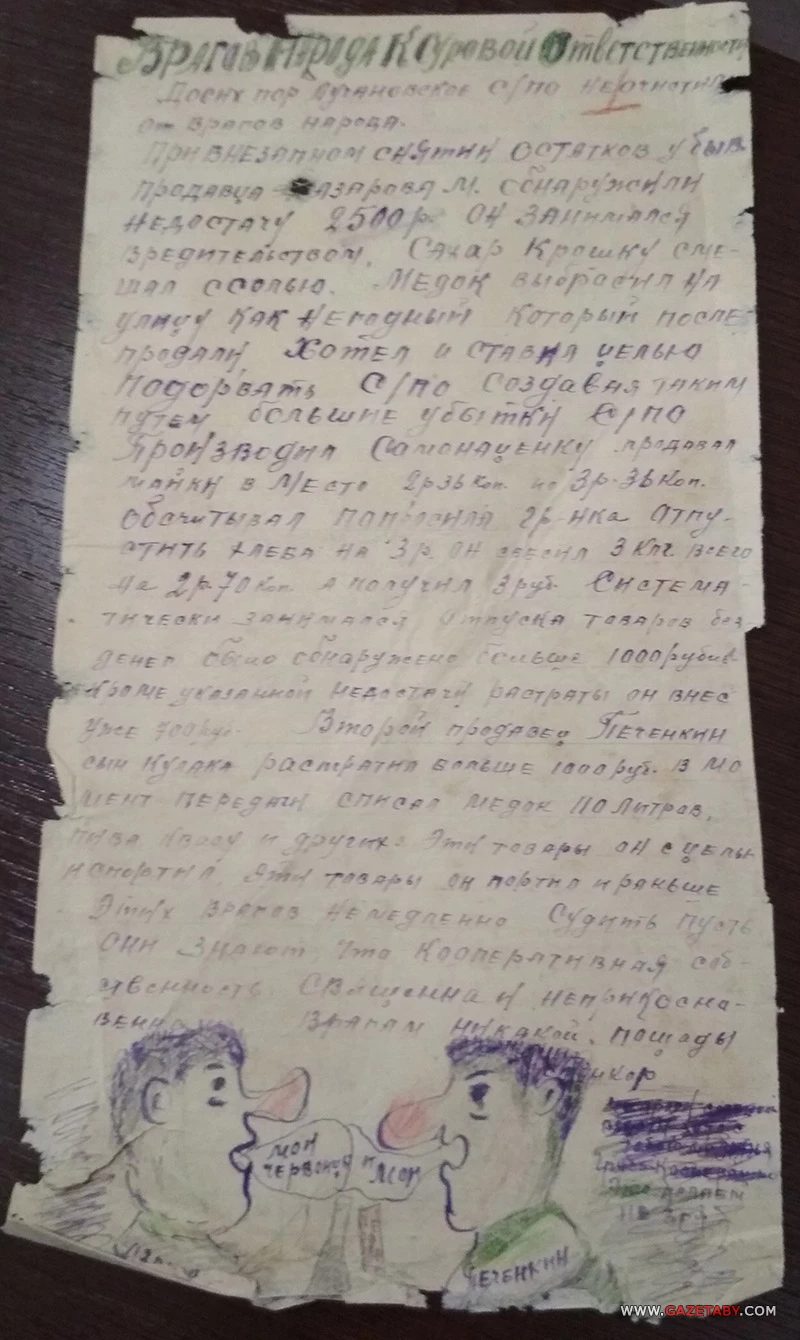 Врагов Народа К Суровой Ответственности
До сих пор Лучановское С/ПО не очистил
от врагов народа.
При внезапном снятии остатков у быв.
продавца азарова М. обнаружили
недостачу 2500р. Он занимался
вредительством. Сахар Крошку сме-
шал с солью. Медок выбросил на
улицу как негодный который после
продали Хотел и ставил целью
подорвать С/ПО создавая таким
путем большие убытки С/ПО
Производил Самонаценку продавал
майки в место 2р36коп. по 3р-36коп.
обсчитывал попросила гр-нка отпу-
стить хлеба на 3р. он свесил 3 кгл. всего
на 2р.70коп. а получил 3руб. Система-
тически занимался отпуска товаров без
денег было обнаружено больше 1000рублей
Кроме указанной недостачи растраты он внес
уже 700руб. Второй продавец Печенкин
сын кулака растратил больше 1000руб. В мо
мент передачи списал медок 110 литров,
пива квасу и других. Эти товары он с целью
испортил. Эти товары он портил и раньше
Этих врагов немедленно Судить пусть
они знают, что Кооперативная соб-
ственность Священна и неприкосно-
венна Врагам никакой пощады
МОИ
ЧЕРВОНЦЫ
И
МОИ
Это делаем
не зря
ПЕЧЕНКИН
WWW.GAZETABY.COM